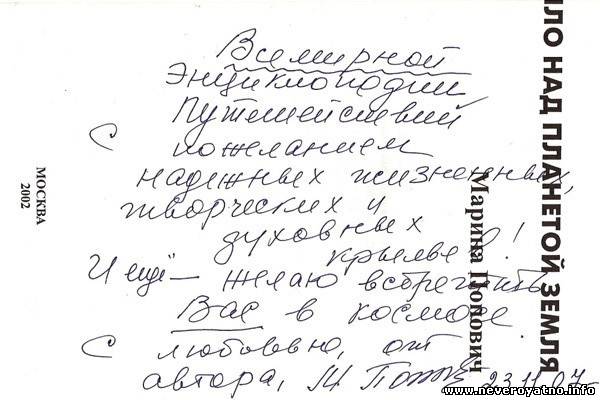 Всемирной
Энциклопедии
Путешествий
С пожеланием
надежных жизненных,
творческих и
духовных
крыльев!
И ещё — желаю встретить
Вас в космосе
С любовью, от
автора, М Попов 23.11.07
МОСКВА
2002
Марина Попович
ЛО НАД ПЛАНЕТОЙ ЗЕМЛЯ
www.neveroyatno.info